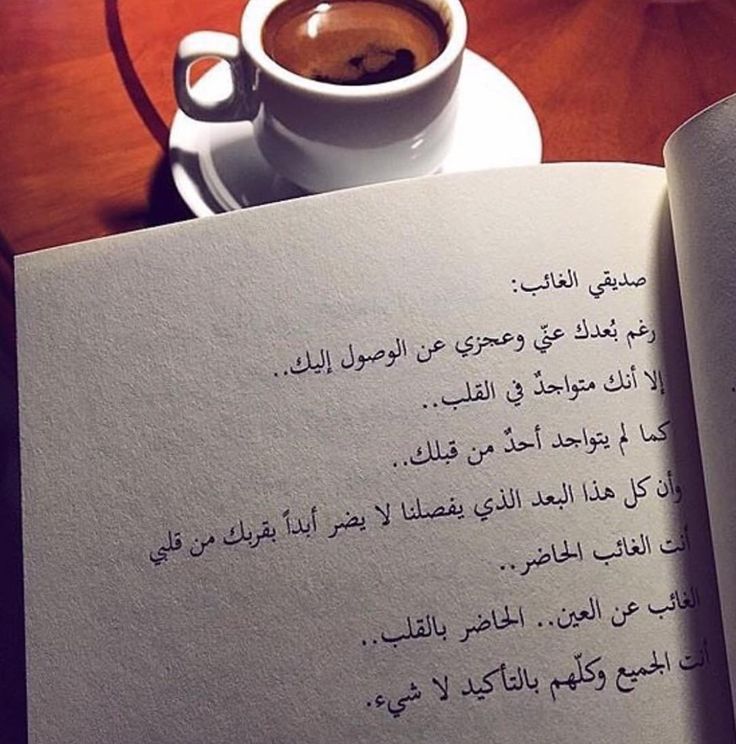 صديقي الغائب:
رغم بُعدك عنّي وعجزي عن الوصول إليك..
إلا أنك متواجدٌ في القلب..
كما لم يتواجد أحدٌ من قبلك..
وأن كل هذا البعد الذي يفصلنا لا يضر أبداً بقربك من قلبي
أنت الغائب الحاضر..
الغائب عن العين.. الحاضر بالقلب..
أنت الجميع وكلّهم بالتأكيد لا شيء.